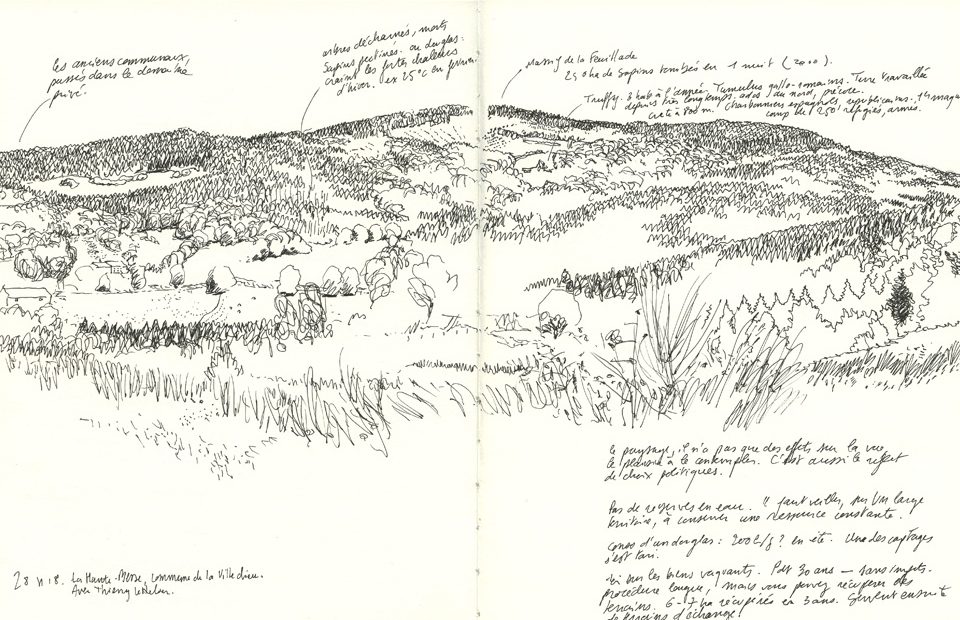 les anciens communaux,
passés dans le domaine
privé.
arbres décharnés, morts
Sapins pectinés. ou douglas :
craint les fortes chaleurs
d'hiver. ex 25°C en février
Massif de la Feuillade
250 ha de sapins tombés en 1 nuit (2000).
Truffy. 3 hab à l'année. Tumulus gallo-romains. Terre travaillée
depuis très longtemps. ados au nord, précoce.
crête à 800 m. charbonniers espagnols, républicains.
camp de 250 réfugiés, armés.
le paysage, il n'a pas que des effets sur la vue,
le plaisir à le contempler. C'est aussi le reflet
de choix politiques.
Pas de réserves en eau. Il faut veiller, sur un large
territoire, à conserver une ressource constante.
conso d'un douglas : 200L/j ? en été. Une des captages
s'est tari.
Loi sur les biens vaquants. Pdt 30 ans – sans impôts.
procédure longue, mais vous pouvez récupérer des
terrains. 6-7 ha récupérés en 3 ans. Servent ensuite
de terrains d'échange !
28 VI 18. La Haute-, commune de la Villedieu.
Avec Thierry Letellier.